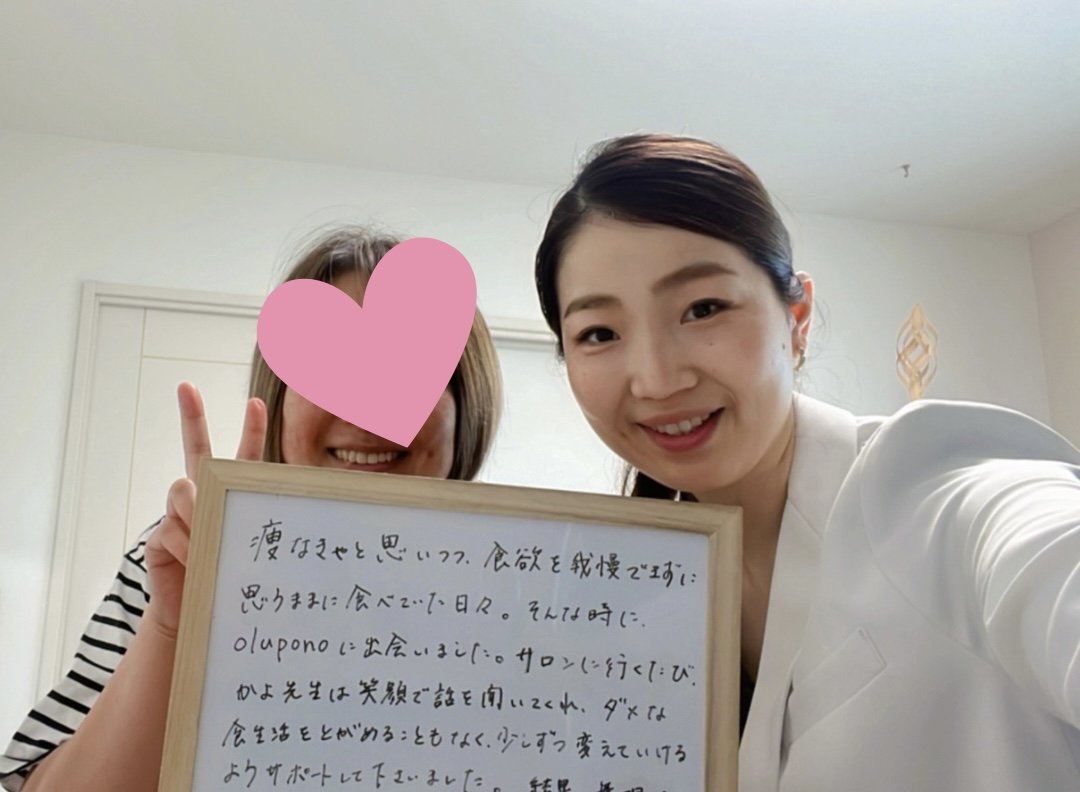 痩なきゃと思いつつ、食欲を我慢できずに
思うままに食べていた日々。そんな時に、
oluponoに出会いました。サロンに行くたび、
かよ先生は笑顔で話を聞いてくれ、ダメな
食生活をとがめることもなく、少しずつ変えていける
ようサポートして下さいました。結果